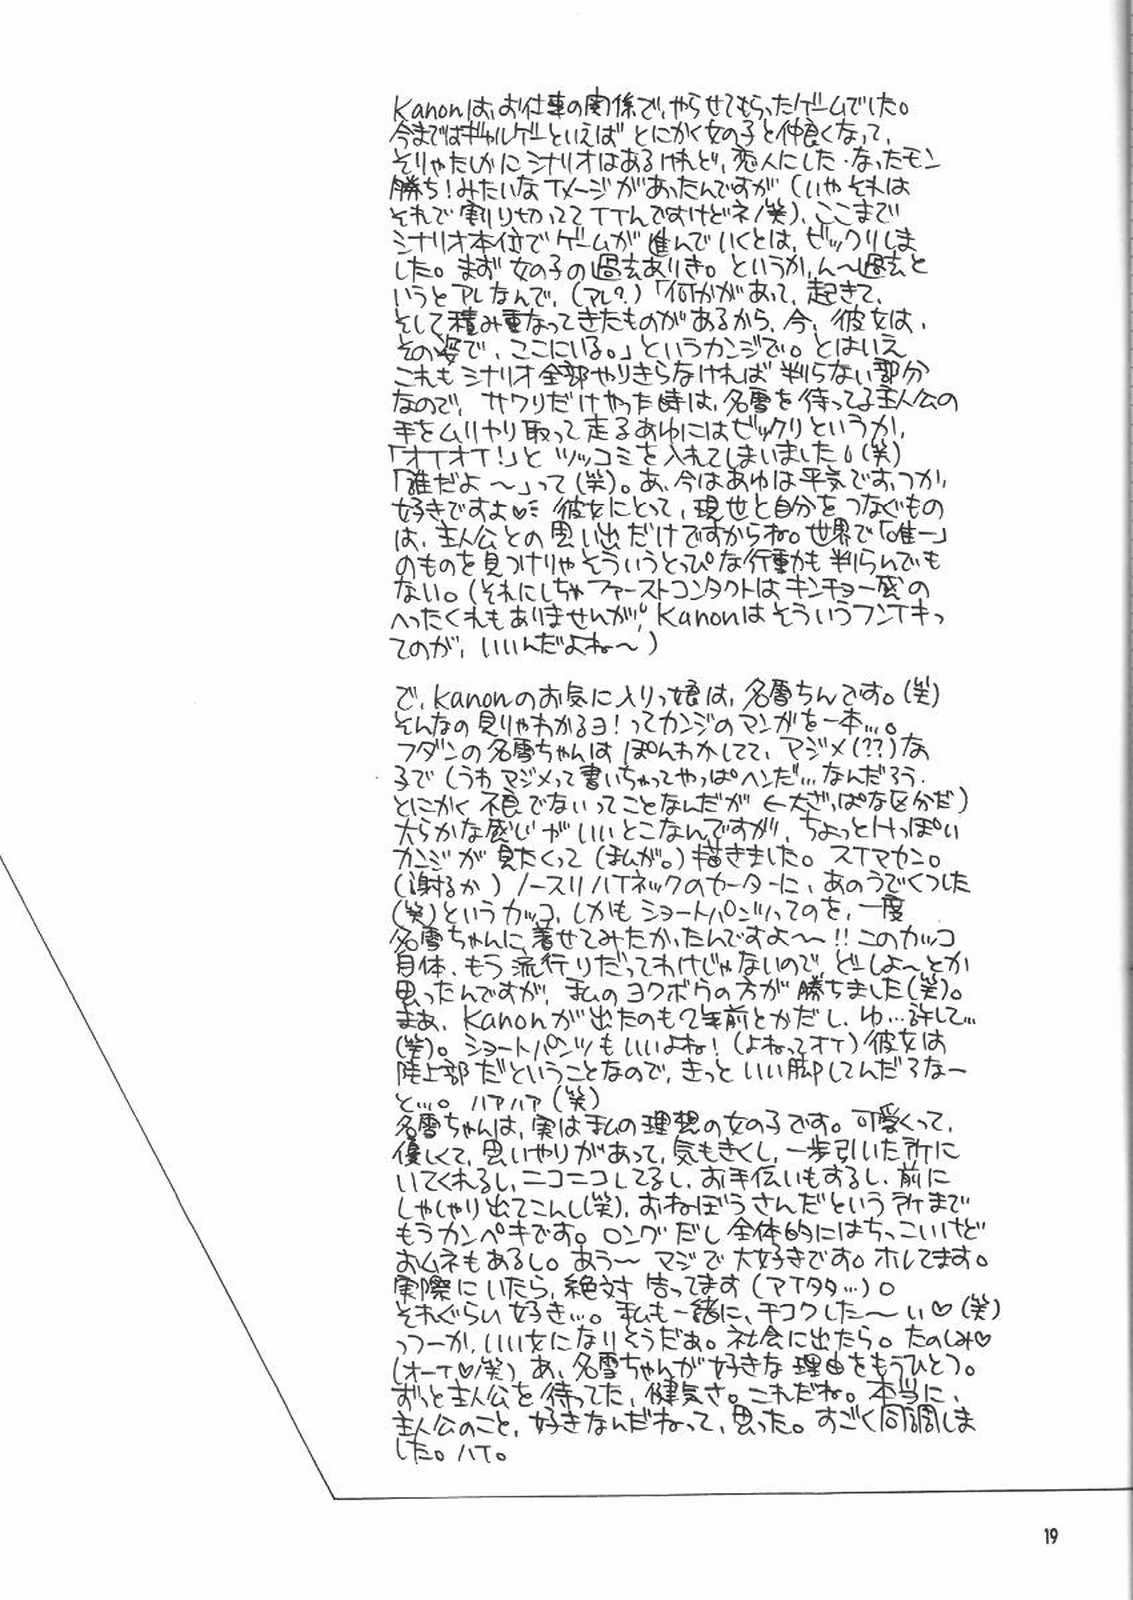 Kanonは、お仕事の関係で、やらせてもらったゲームでした。
今まではギャルゲーといえば とにかく女の子と仲良くなって、
そりゃたしかに シナリオはあるけれど、恋人にした・なったモン
勝ち!みたいなイメージがあったんですが(いやそれは
それで割り切っててイイんですけどネ/笑)、ここまで
シナリオ本位でゲームが進んでいくとは、ビックリしま
した。まず女の子の過去ありき。というか、ん〜過去と
いうとアレなんで、(アレ?)「何かがあって、起きて、
そして積み重なってきたものがあるから、今、彼女は、
その姿で、ここにいる。」というカンジで。とはいえ
これもシナリオ全部やりきらなければ判らない部分
なので、サワリだけやった時は、名雪を待ってる主人公の
手をムリヤリ取って走るあゆにはビックリというか、
「オイオイ!」とツッコミを入れてしまいました。(笑)
「誰だよ〜」って(笑)。あ、今はあゆは平気です、つか、
好きですよ♡ 彼女にとって、現世と自分をつなぐもの
は、主人公との思い出だけですからね。世界で「唯一」
のものを見つけりゃそういうとっぴな行動も判らんでも
ない。(それにしちゃファーストコンタクトはキンチョー感の
へったくれもありませんが、Kanonはそういうフンイキっ
てのが、いいんだよね〜)
で、Kanonのお気に入りっ娘は、名雪ちんです。(笑)
そんなの見りゃわかるヨ!ってカンジのマンガを一本…。
フダンの名雪ちゃんは ぽんわかしてて、マジメ(??)な
子で(うわマジメって書いちゃってやっぱヘンだ…なんだろう.
とにかく不良でないってことなんだが ←大ざっぱな区分だ)
大らかな感じがいいとこなんですが、ちょっとHっぽい
カンジが見たくって(まんが。)描きました。スイマセン。
(謝るか)ノースリハイネックのセーターに、あのうでくつした
(笑)というカッコ、しかもショートパンツってのを、一度
名雪ちゃんに着せてみたかったんですよ〜!!このカッコ
自体、もう流行りだってわけじゃないので、どーしよ〜とか
思ったんですが、私のヨクボウの方が勝ちました(笑)。
まぁ、Kanonが出たのも2年前とかだし、ゆ…許して…
(笑)。ショートパンツもいいよね!(よねってオイ)彼女は
陸上部だということなので、きっといい脚してんだろなー
と…。ハァハァ(笑)
名雪ちゃんは、実は私の理想の女の子です。可愛くって、
優しくて、思いやりがあって、気もきくし、一歩引いた所に
いてくれるし、ニコニコしてるし、お手伝いもするし、前に
しゃしゃり出てこんし(笑)、おねぼうさんだという所まで
もうカンペキです。ロングだし全体的にはちっこいけど
おムネもあるし。あう〜 マジで大好きです。ホレてます。
実際にいたら、絶対告ってます(アイタタ…)。
それぐらい好き…。私も一緒に、チコクした〜い♡(笑)
っつーか、いい女になりそうだぁ。社会に出たら。たのしみ♡
(オーイ♡/笑) あ、名雪ちゃんが好きな理由をもうひとつ。
ずっと主人公を待ってた、健気さ。これだね。本当に、
主人公のこと、好きなんだねって、思った。すごく同調しま
した。ハイ。
19